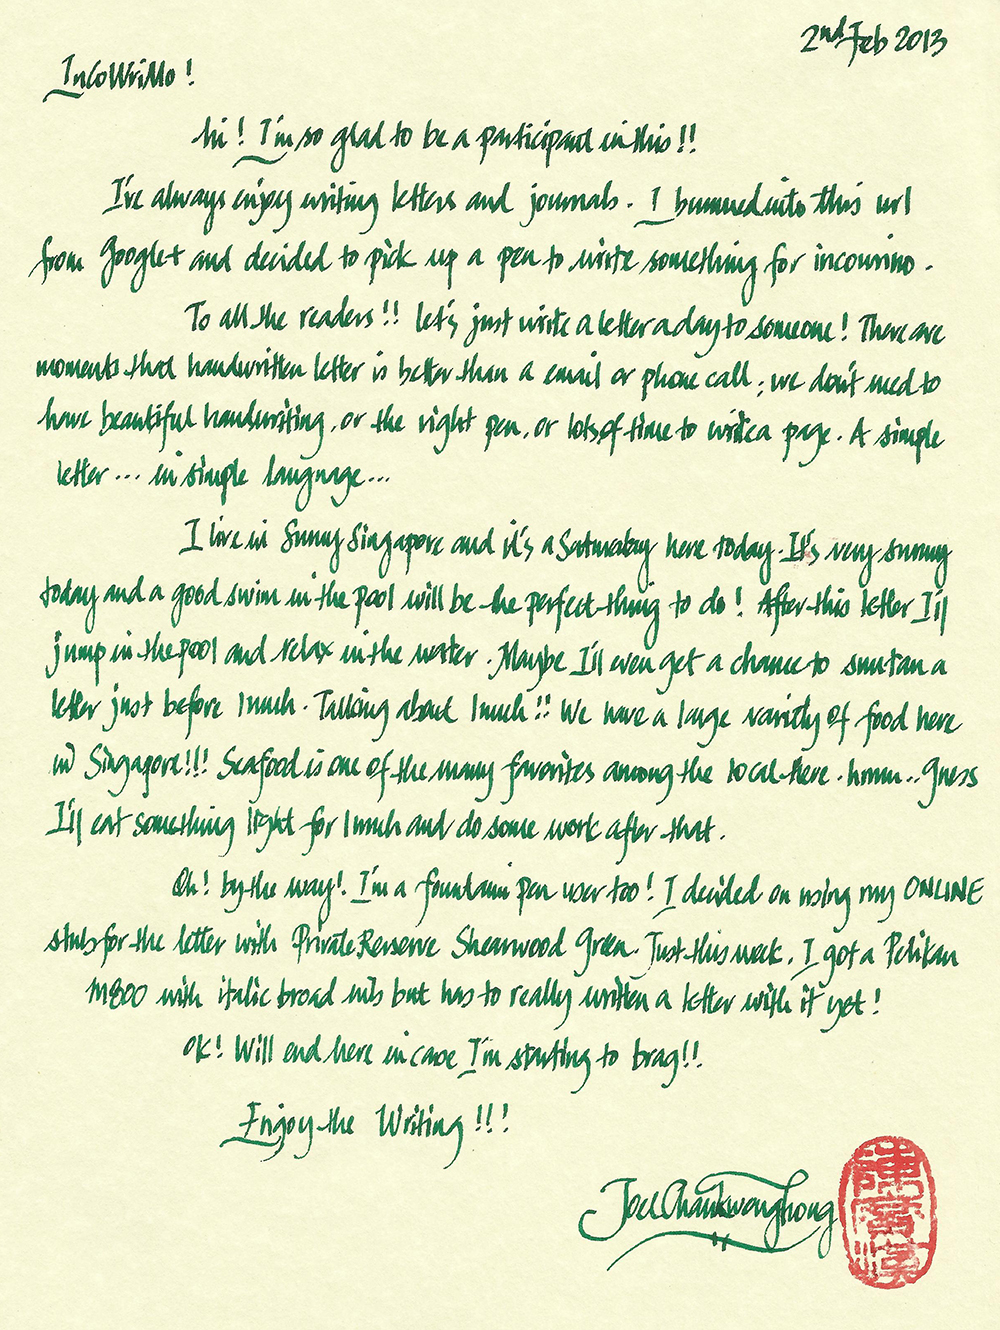 2nd Feb 2013
InCoWriMo!
hi! I'm so glad to be a participant in this!!
I've always enjoy writing letters and journals. I bummed into this url
from Google+ and decided to pick up a pen to write something for incowrimo.
To all the readers!! let's just write a letter a day to someone! There are
moments that handwritten letter is better than a email or phone call; we don't need to
have beautiful handwriting, or the right pen, or lots of time to write a page. A simple
letter... in simple language...
I live in Sunny Singapore and it's a Saturday here today. It's very sunny
today and a good swim in the pool will be the perfect thing to do! After this letter I'll
jump in the pool and relax in the water. Maybe I'll even get a chance to suntan a
letter just before lunch. Talking about lunch!! We have a large varitly of food here
in Singapore!!! Seafood is one of the many favorites among the local here. hmm.. guess
I'll eat something light for lunch and do some work after that.
Oh! by the way! I'm a fountain pen user too! I decided on using my ONLINE
stub for the letter with Private Reserve Shearwood Green. Just this week, I got a Pelikan
M800 with italic broad nib but has to really written a letter with it yet!
OK! Will end here in case I'm starting to brag!!
Enjoy the Writing!!!
Joel Chankwonghong
陳